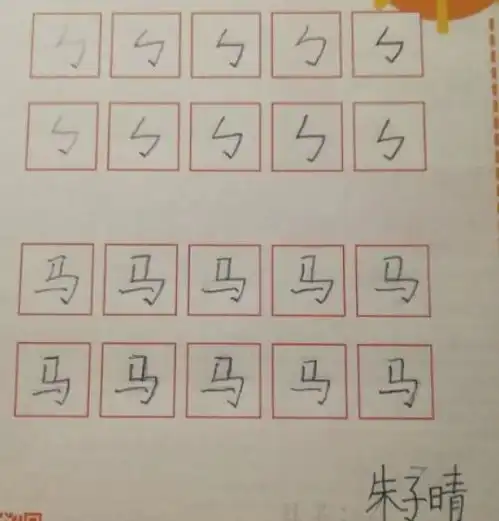 ㄣ ㄣ ㄣ ㄣ ㄣ
ㄣ ㄣ ㄣ ㄣ ㄣ
马 马 马 马 马
马 马 马 马 马
朱子晴